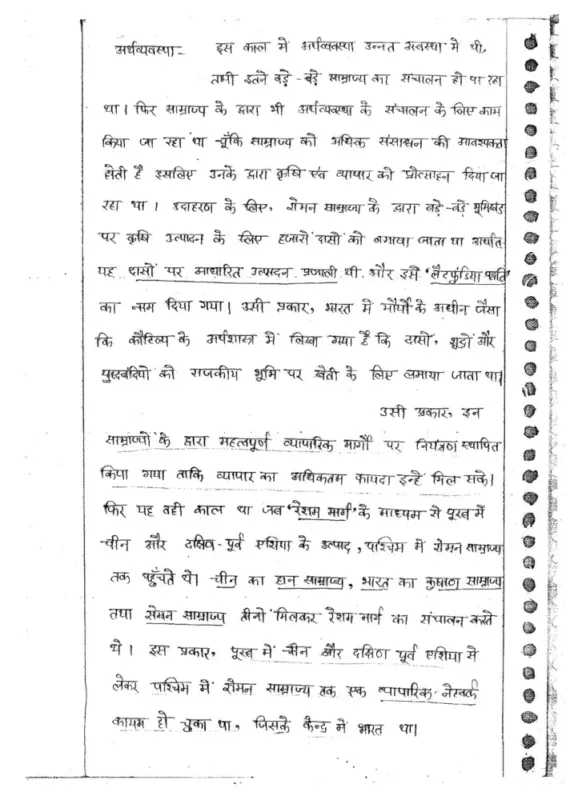 अर्थव्यवस्था - इस काल में अर्थव्यवस्था उन्नत अवस्था में थी,
तभी इतने बड़े - बड़े साम्राज्य का संचालन हो पा रहा
था। फिर साम्राज्य के द्वारा भी अर्थव्यवस्था के संचालन के लिए काम
किया जा रहा था चूँकि साम्राज्य को अधिक संसाधन की आवश्यकता
होती है इसलिए उनके द्वारा कृषि एवं व्यापार को प्रोत्साहन दिया जा
रहा था। उदाहरण के लिए, रोमन साम्राज्य के द्वारा बड़े-बड़े भूमिखंड
पर कृषि उत्पादन के लिए हजारों दासों को लगाया जाता था अर्थात्
यह दासों पर आधारित उत्पादन प्रणाली थी और इसे 'लैटफुंडिया पद्धति'
का नाम दिया गया। उसी प्रकार, भारत में मौर्यों के अधीन जैसा
कि कौटिल्य के अर्थशास्त्र में लिखा गया है कि दासों, शूद्रों और
युद्धबंदियों को राजकीय भूमि पर खेती के लिए लगाया जाता था।
उसी प्रकार, इन
साम्राज्यों के द्वारा महत्वपूर्ण व्यापारिक मार्गों पर नियंत्रण स्थापित
किया गया ताकि व्यापार का अधिकतम फायदा इन्हें मिल सके।
फिर यह वही काल था जब 'रेशम मार्ग' के माध्यम से पूरब में
चीन और दक्षिण-पूर्व एशिया के उत्पाद, पश्चिम में रोमन साम्राज्य
तक पहुँचते थे। चीन का हान साम्राज्य, भारत का कुषाण साम्राज्य
तथा रोमन साम्राज्य तीनों मिलकर रेशम मार्ग का संचालन करते
थे। इस प्रकार, पूरब में चीन और दक्षिण पूर्व एशिया से
लेकर पश्चिम में रोमन साम्राज्य तक एक व्यापारिक नेटवर्क
कायम हो चुका था, जिसके केन्द्र में भारत था।